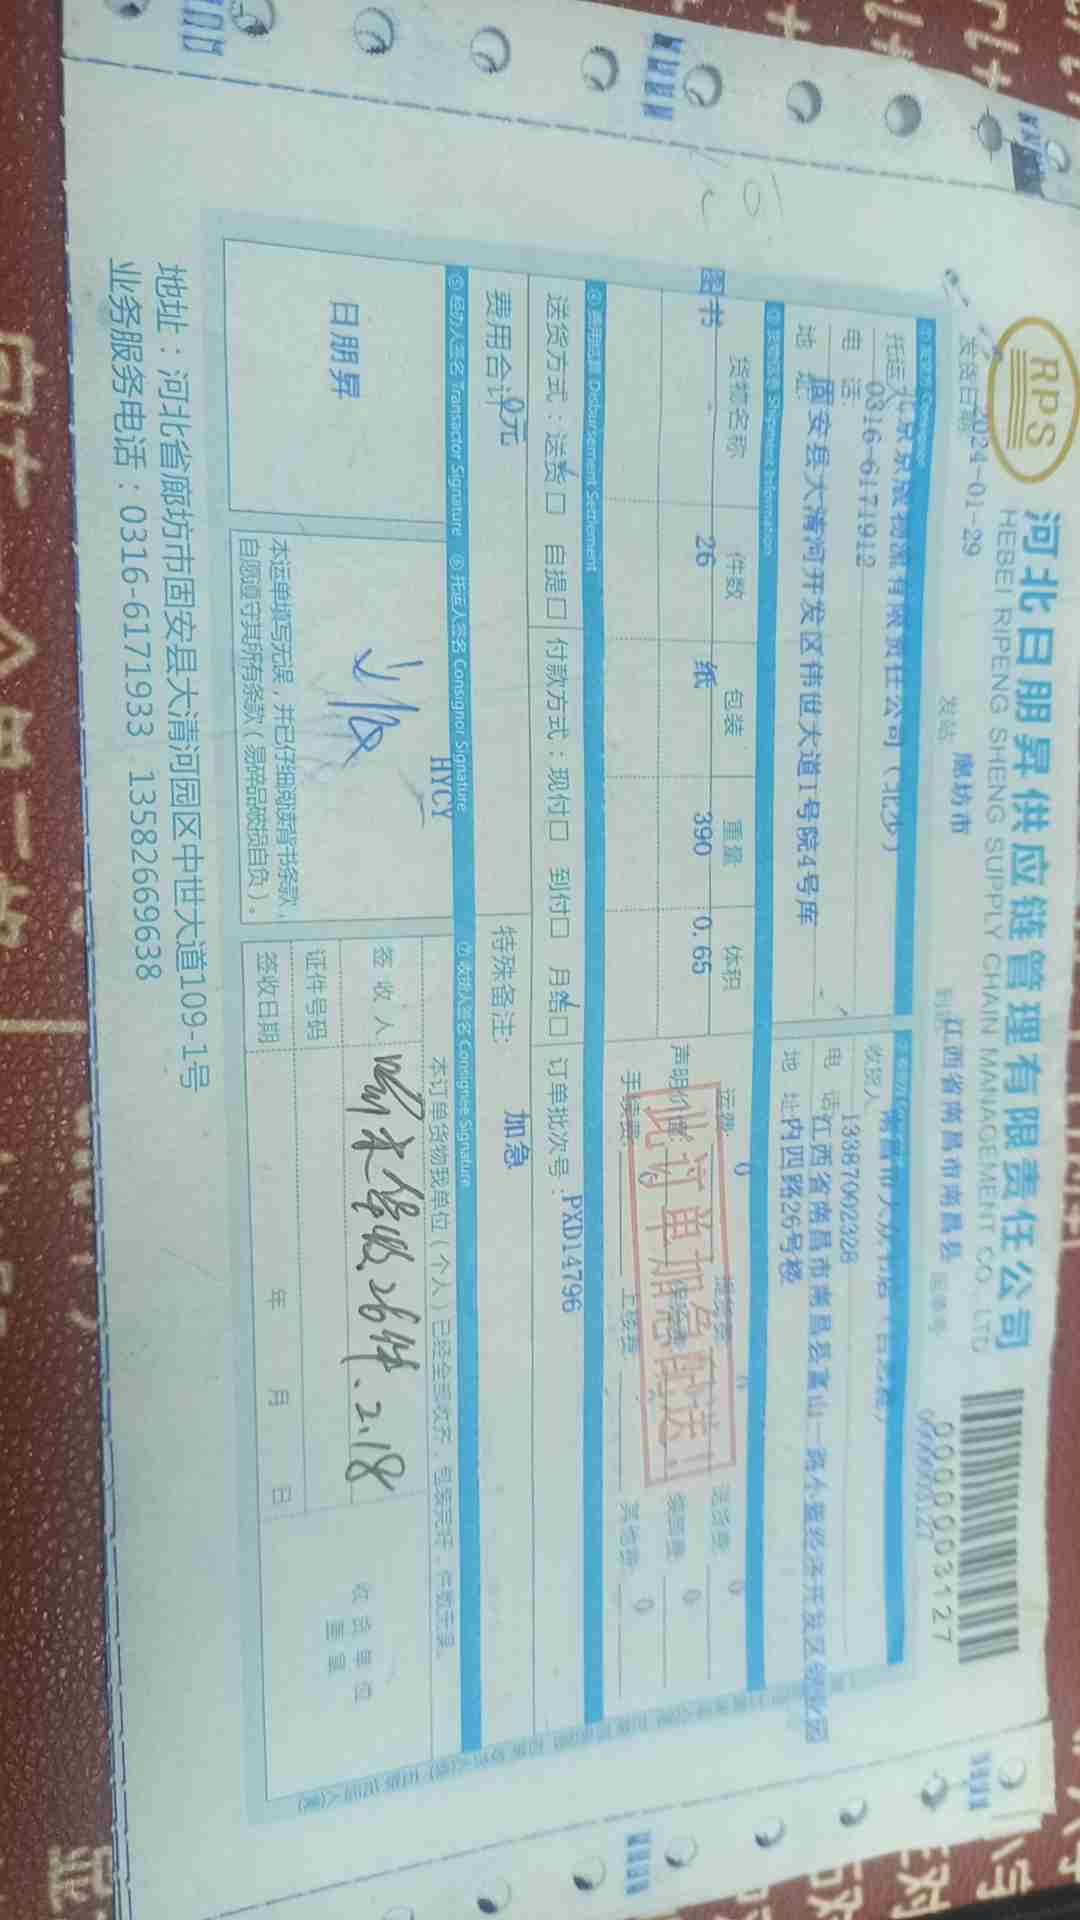 RPS
河北日朋昇供应链管理有限责任公司
HEBEI RIPENG SHENG SUPPLY CHAIN MANAGEMENT CO., LTD
0000003127
发货日期 2024-01-29 发站: 廊坊市 江西省南昌市南昌县
托运人 北京京版物流有限责任公司(北少)
电 话: 0316-6171912
地 址: 固安县大清河开发区伟世大道1号院4号库
收货人
电 话: 13387002328
地 址: 江西省南昌市南昌县富山一路小蓝经济开发区创业园内四路26号楼
③货物信息 Shipment Information
货物名称 件数 包装 重量 体积
图书 26 纸 390 0.65
运费: 0 提货费: 0 送货费: 0
声明价值: 0 保险费: 装卸费: 0
手续费: 上楼费: 其他费: 0
此订单加急配送!
④费用结算 Disbursement Settlement
送货方式:送货☑ 自提口 付款方式:现付口 到付口 月结☑ 订单批次号:PXD14796
费用合计 0元 特殊备注: 加急
⑤经办人签名 Transactor Signature ⑥托运人签名 Consignor Signature ⑦收货人签名 Consignee Signature
日朋昇
HYCY
本运单填写无误,并已仔细阅读背书条款,
自愿遵守其所有条款(易碎品破损自负)。
本订单货物我单位(个人)已经全部收齐,包装完好,件数无误。
签 收 人: 26件.2.18
证件号码
签收日期 年 月 日
收货单位
盖章
地址:河北省廊坊市固安县大清河园区中世大道109-1号
业务服务电话:0316-6171933 13582669638